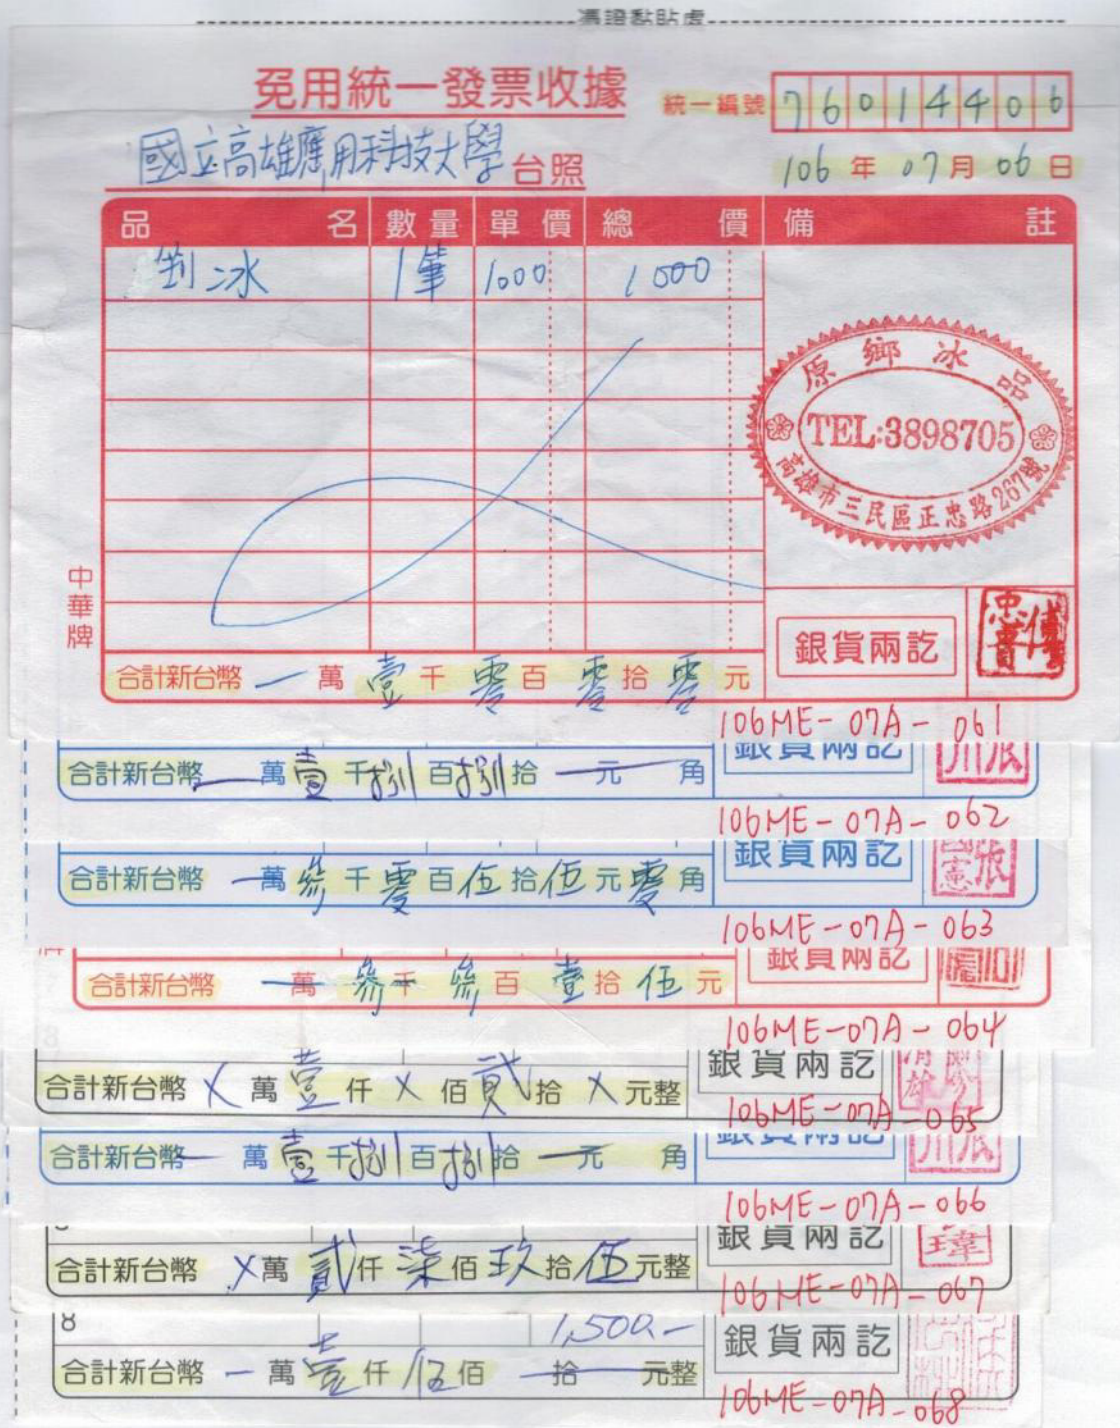 憑證黏貼處
免用統一發票收據
統一編號 76014406
國立高雄應用科技大學 台照
106 年 07 月 06 日
品名 數量 單價 總價 備註
剉冰 1筆 1000 1000
原鄉冰品
TEL:3898705
高雄市三民區正忠路267號
中華牌
銀貨兩訖
合計新台幣 一 萬 壹 千 零 百 零 拾 零 元
106ME-07A-061
合計新台幣 一 萬 壹 千 捌 百 捌 拾 一 元 角
銀貨兩訖
106ME-07A-062
合計新台幣 一 萬 參 千 零 百 伍 拾 伍 元 零 角
銀貨兩訖
張國憲
106ME-07A-063
合計新台幣 一 萬 參 千 參 百 壹 拾 伍 元
銀貨兩訖
106ME-07A-064
合計新台幣 X 萬 壹 仟 X 佰 貳 拾 X 元整
銀貨兩訖
106ME-07A-065
合計新台幣 一 萬 壹 千 捌 百 捌 拾 一 元 角
銀貨兩訖
106ME-07A-066
合計新台幣 X 萬 貳 仟 柒 佰 玖 拾 伍 元整
銀貨兩訖
106ME-07A-067
8 1,500.-
合計新台幣 一 萬 壹 仟 伍 佰 拾 一 元整
銀貨兩訖
106ME-07A-068